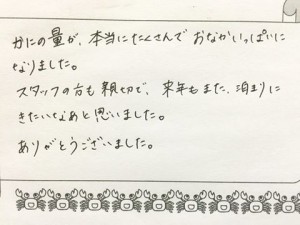 かにの量が、本当にたくさんで おなかいっぱいに
なりました。
スタッフの方も親切で、来年もまた、泊まりに
きたいなあと思いました。
ありがとうございました。